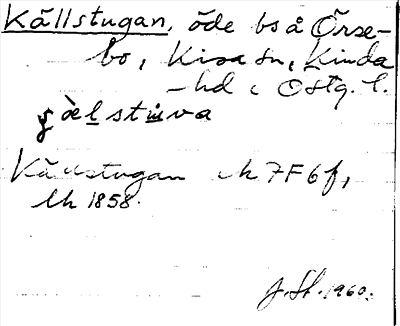 Källstugan, öde bs å Örse-
bo, Kisa sn, Kinda
hd, Östg. l.
Källstugan ek 7F6f,
lh 1858.
J. St. 1960.